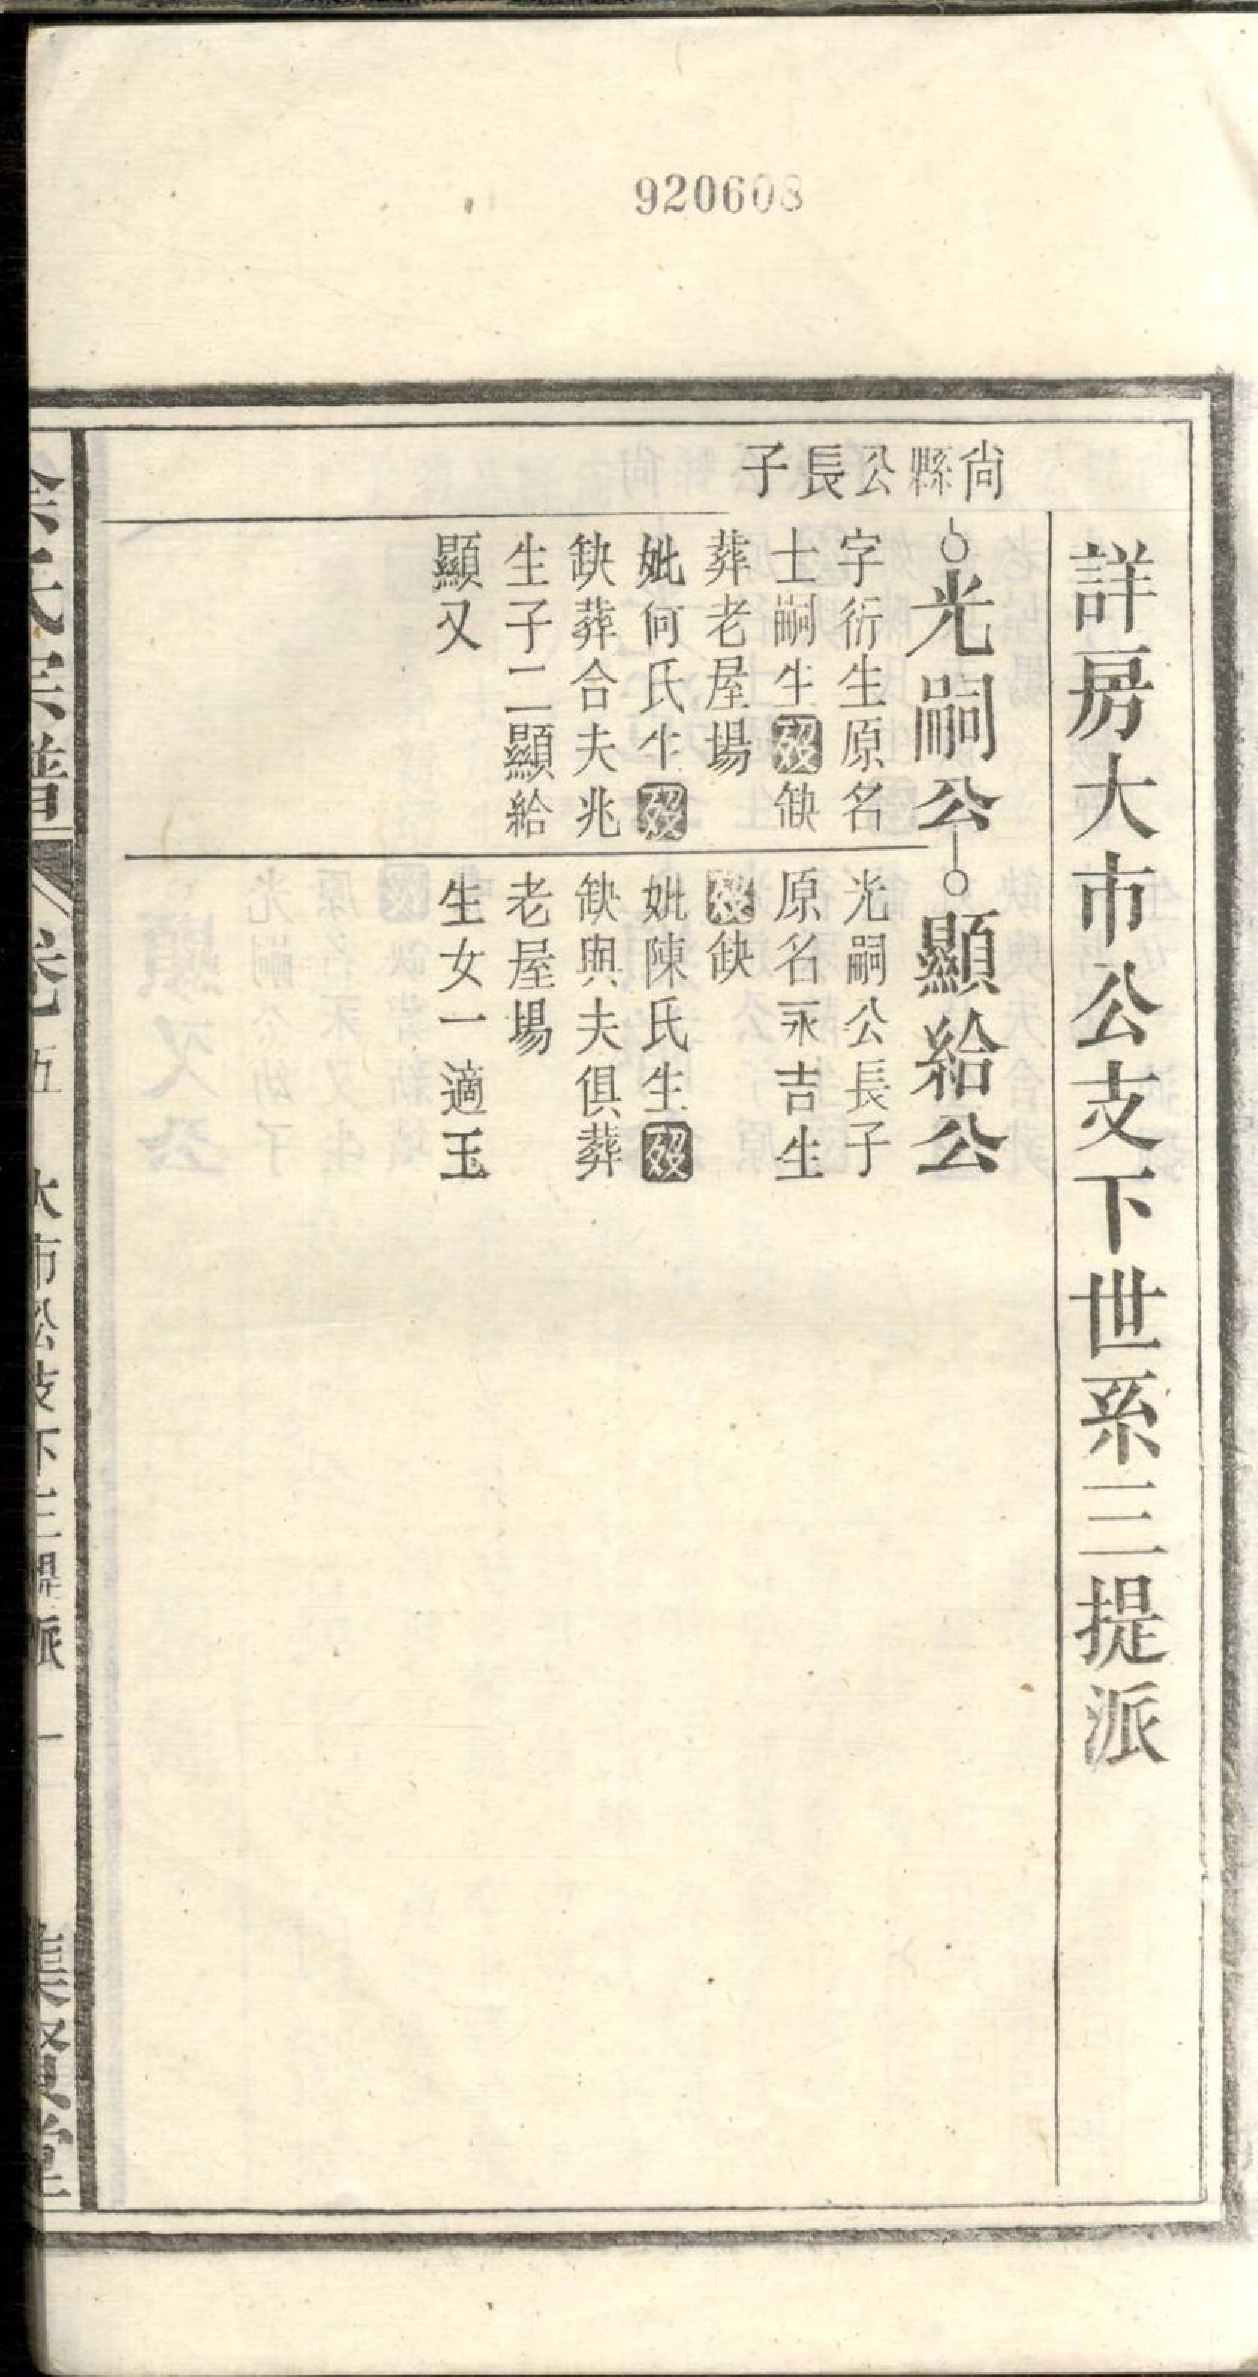 920608
詳房大市公支下世系三提派
尙縣公長子
光嗣公
字衍生原名
士嗣生歿缺
葬老屋場
妣何氏生歿
缺葬合夫兆
生子二顯給
顯又
顯給公
光嗣公長子
原名永吉生
歿缺
妣陳氏生歿
缺與夫俱葬
老屋場
生女一適玉
氏宗譜
卷五
大市公支下三提派
一
集賢堂